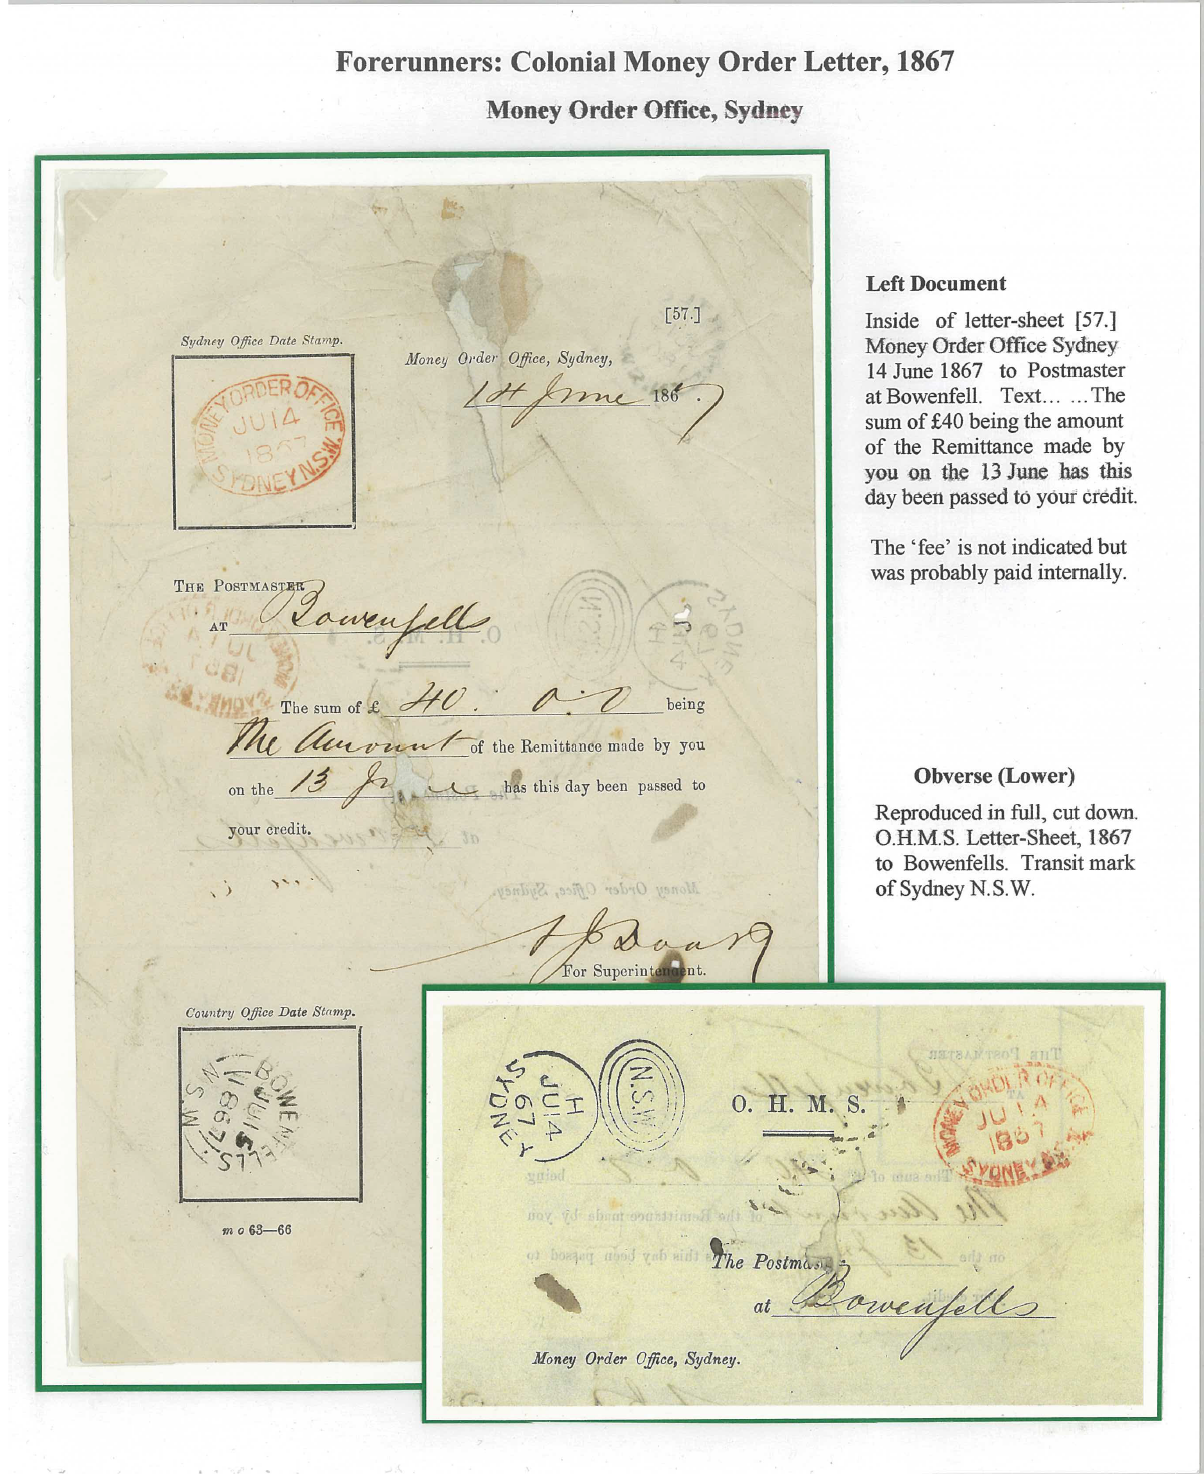 Forerunners: Colonial Money Order Letter, 1867
Money Order Office, Sydney
[57.]
Sydney Office Date Stamp.
Money Order Office, Sydney,
14 June 1867.
MONEY ORDER OFFICE
JU 14
1867
SYDNEY N.S.W.
THE POSTMASTER
AT Bowenfells
The sum of £ 40 : 0 : 0 being
The Amount of the Remittance made by you
on the 13 June has this day been passed to
your credit.
For Superintendent.
Country Office Date Stamp.
BOWENFELLS
JU 15
1867
N.S.W
m o 63—66
Left Document
Inside of letter-sheet [57.]
Money Order Office Sydney
14 June 1867 to Postmaster
at Bowenfell. Text… …The
sum of £40 being the amount
of the Remittance made by
you on the 13 June has this
day been passed to your credit.
The ‘fee’ is not indicated but
was probably paid internally.
Obverse (Lower)
Reproduced in full, cut down.
O.H.M.S. Letter-Sheet, 1867
to Bowenfells. Transit mark
of Sydney N.S.W.
H
JU 14
67
SYDNEY
N.S.W
O. H. M. S.
MONEY ORDER OFFICE
JU 14
1867
SYDNEY
The Postmas
at Bowenfells
Money Order Office, Sydney.